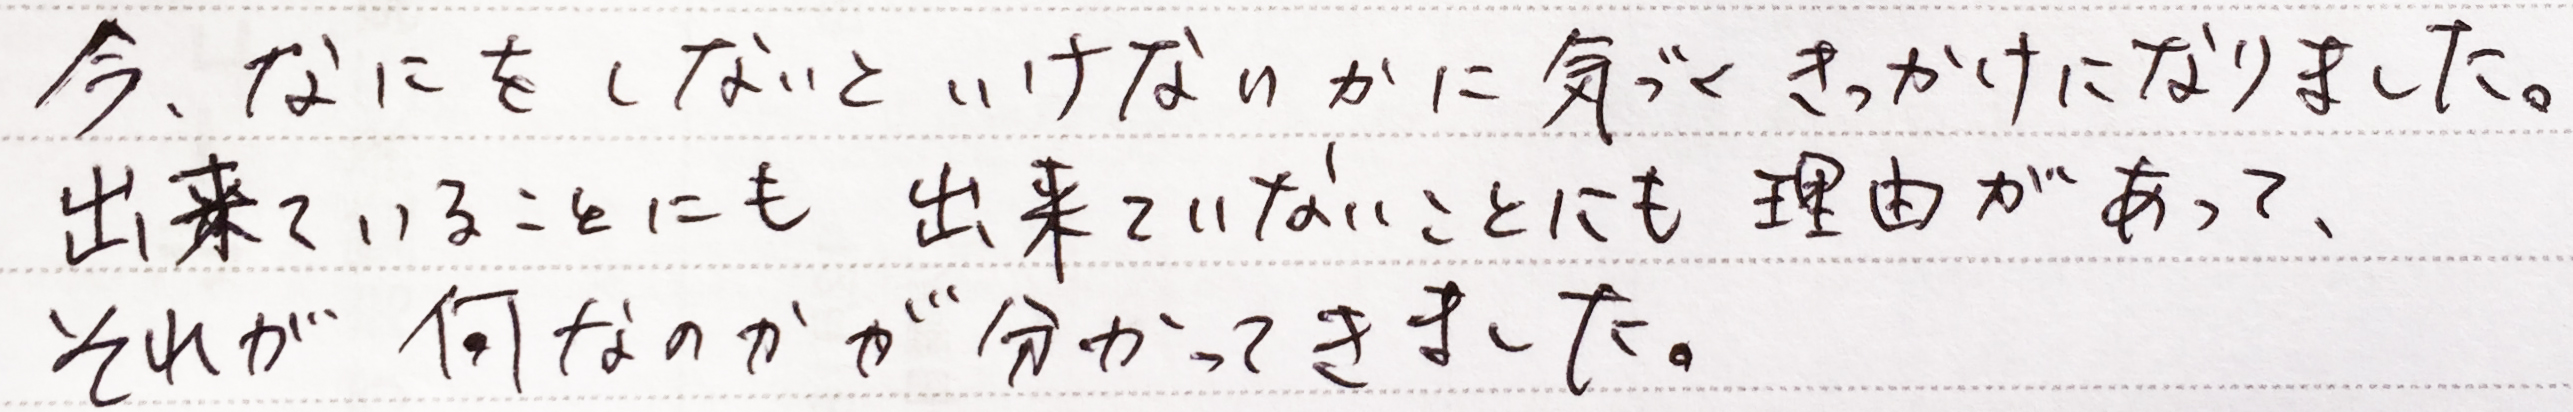 今、なにをしないといけないかに気づくきっかけになりました。
出来ていることにも出来ていないことにも理由があって、
それが何なのかが分かってきました。